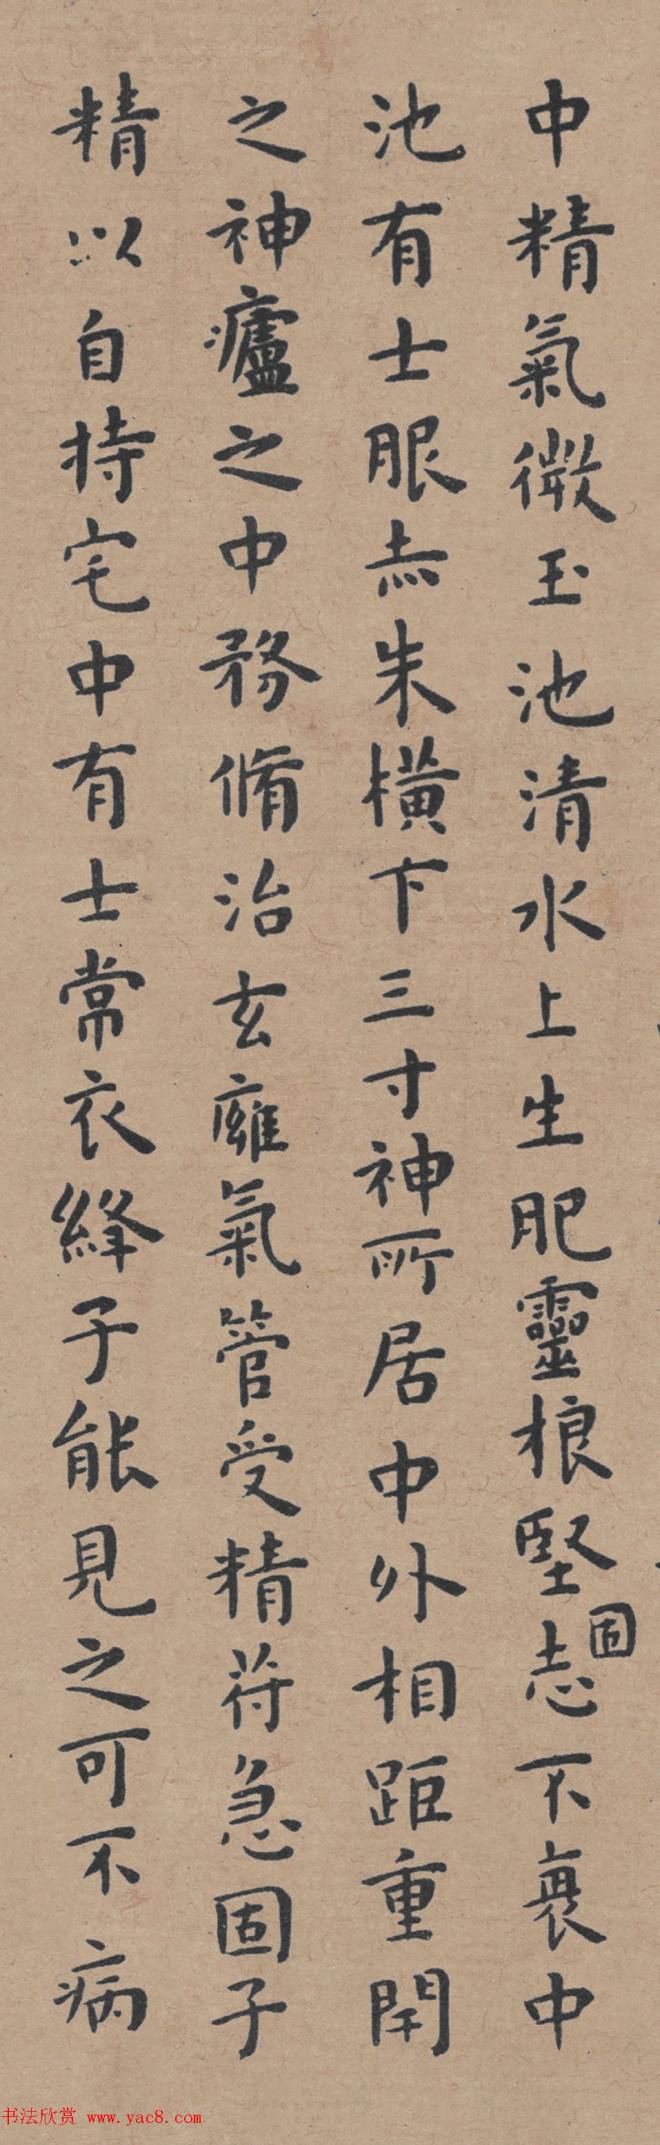 中精氣微玉池清水上生肥靈根堅固志不衰中
池有士服赤朱橫下三寸神所居中外相距重閉
之神廬之中務脩治玄廱氣管受精符急固子
精以自持宅中有士常衣絳子能見之可不病
书法欣赏 www.yac8.com